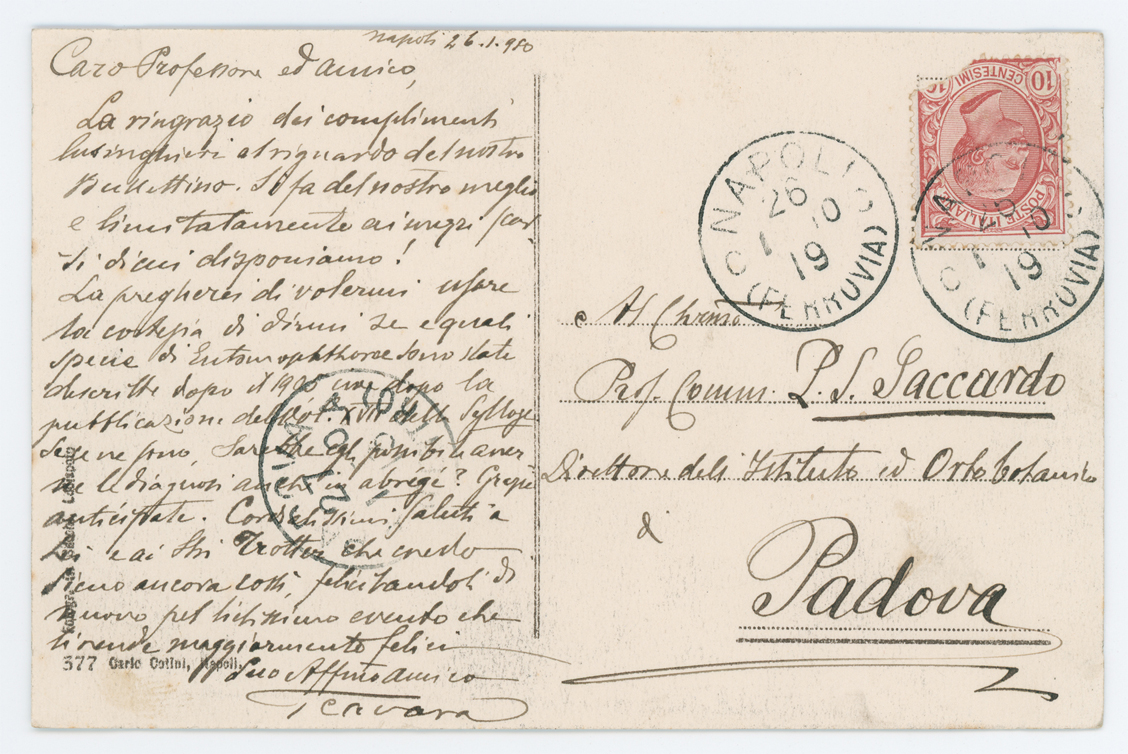 Napoli 26.1.910
Caro Professore ed amico,
La ringrazio dei complimenti
lusinghieri al riguardo del nostro
Bullettino. Si fa del nostro meglio
e limitatamente ai mezzi
di cui disponiamo!
La pregherei di volermi usare
la cortesia di dirmi se e quali
specie di Entomophthorae sono state
descritte dopo il 1905 dopo la
pubblicazione del Vol. XVII della Sylloge
Se ve ne sono, Sarebbe egli possibile aver
ne le diagnosi anche in abrégé? Grazie
anticipate. Cordialissimi saluti a
Lei e ai Sri Trotter che credo
siano ancora costì, felicitandoli di
nuovo pel lietissimo evento che
li rende maggiormente felici
Suo Affmo amico
F Cavara
Al Chiarmo
Prof. Comm. P. A. Saccardo
Direttore dell Istituto ed Orto botanico
di
Padova
POSTE ITALIANE
CENTESIMI 10
10
NAPOLI
26
1 10
19
(FERROVIA)
NAPOLI
1 10
19
(FERROVIA)
377 Carlo Cotini, Napoli.